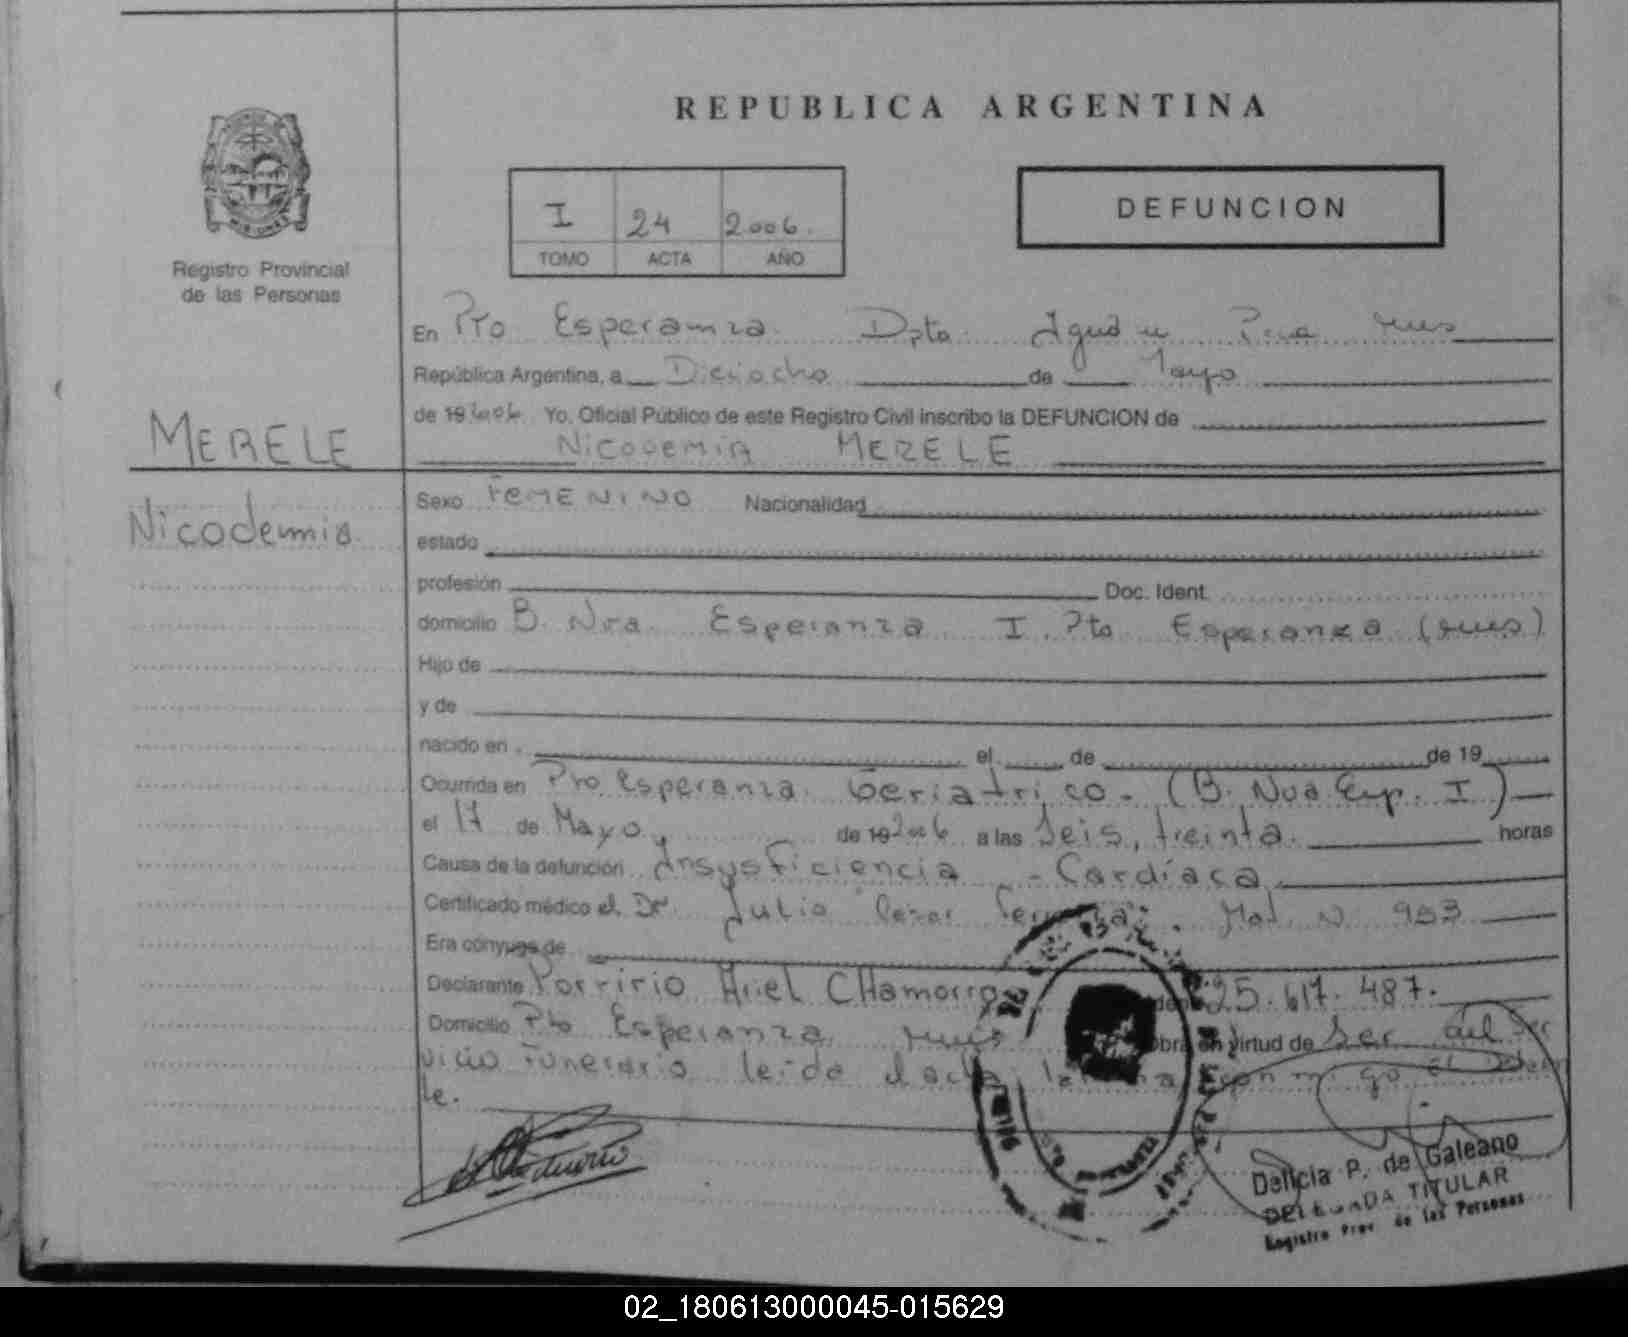 REPUBLICA ARGENTINA
I 24 2006.
TOMO ACTA AÑO
DEFUNCION
Registro Provincial
de las Personas
En Pto Esperanza Dpto Iguazu Pcia
República Argentina, a Dieciocho de Mayo
de 19 2006 Yo, Oficial Público de este Registro Civil inscribo la DEFUNCION de
Nicodemia MERELE
MERELE
Nicodemia
Sexo FEMENINO Nacionalidad
estado
profesión Doc. Ident.
domicilio B. Nva Esperanza I. Pto Esperanza
Hijo de
y de
nacido en el de de 19
Ocurrida en Pto Esperanza Geriatrico. (B. Nva Esp. I)
el 17 de Mayo de 19 2006 a las Seis, treinta horas
Causa de la defunción Insuficiencia - Cardíaca
Certificado médico el Dr. Julio Cesar Mat. N 953
Era cónyuge de
Declarante Porfirio Ariel CHamorro Ident. 25.617.487.
Domicilio Pto Esperanza Obra en virtud de Ser del Ser
vicio Funerario leida el acta la firma conmigo el
te.
Delicia P. de Galeano
DELEGADA TITULAR
Registro Prov. de las Personas
02_180613000045-015629